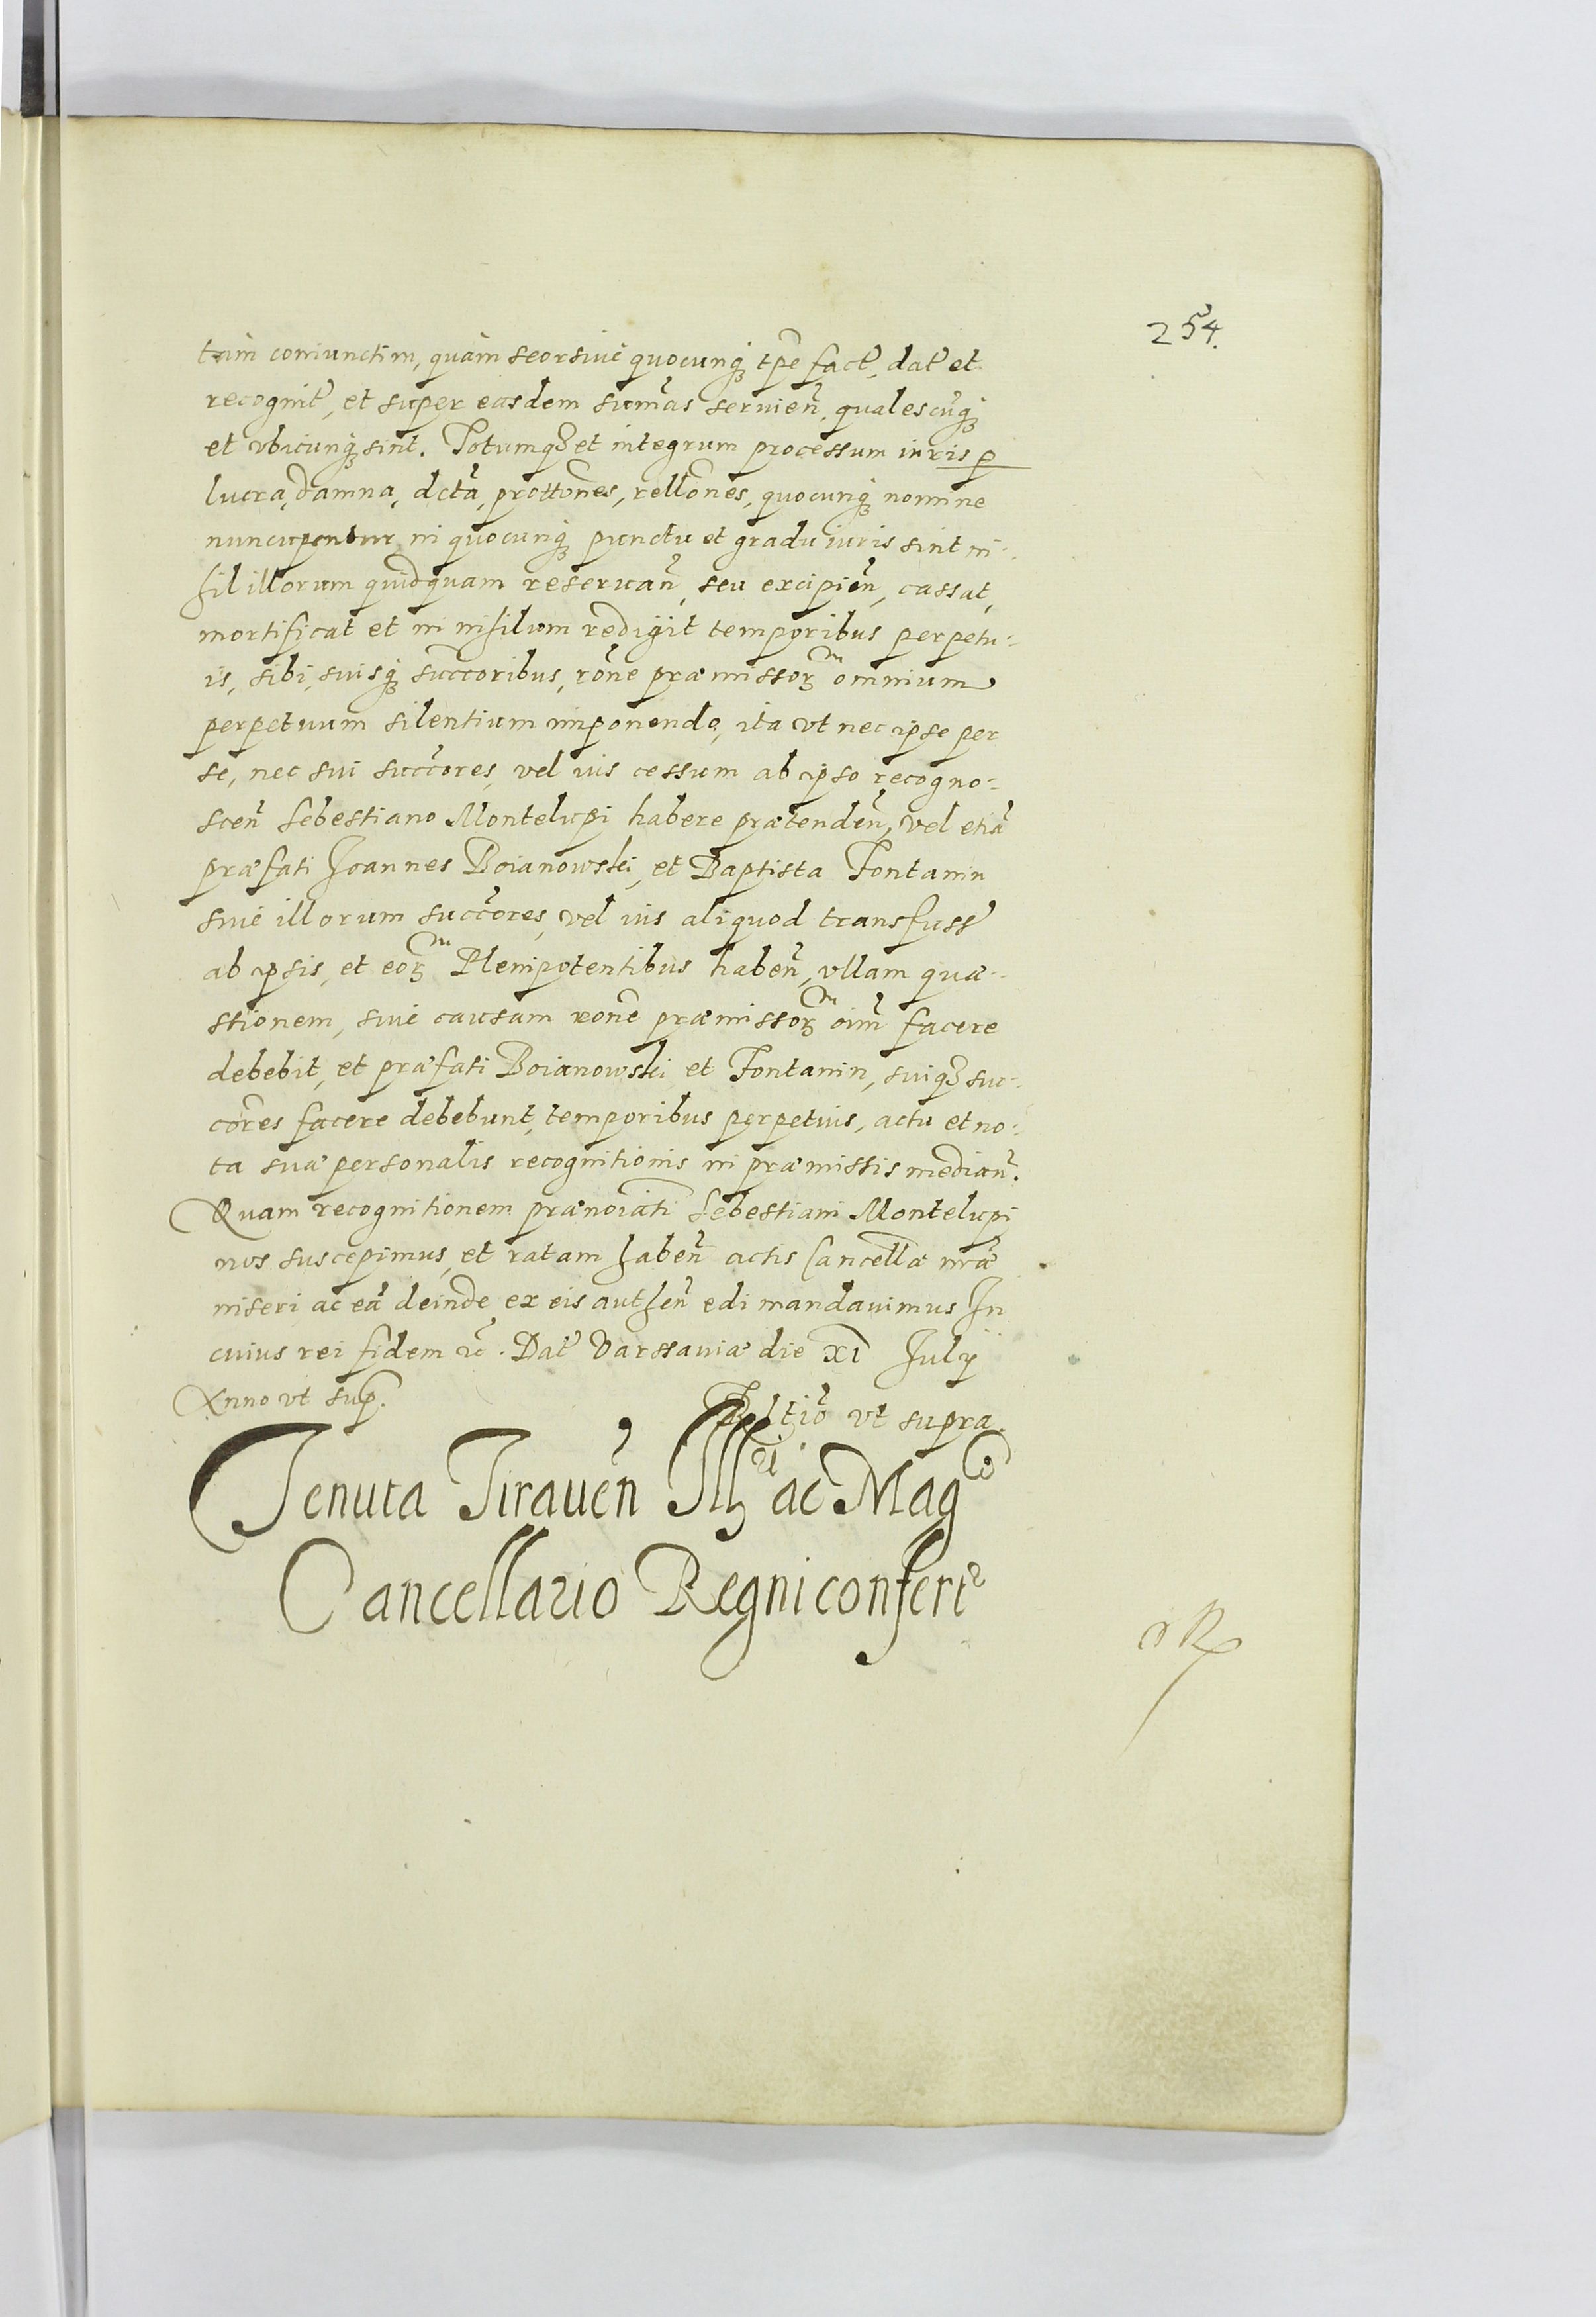 254.
tam coniunctim, quàm seorsiue quocunqꝫ tp̃e fact̃, dat̃ et
recognit̃, et super easdem sum̃as seruien̄, qualescũqꝫ
et vbicunqꝫ sint. Totumqꝫ et integrum processum iuris p̱
lucra, damna, dct̃a, prottõnes, rellõnes, quocunqꝫ nomine
nuncupentur in quocunqꝫ punctu et gradu iuris sint ni-
hil illorum quidquam reseruañ, seu excipieñ, cassat,
mortificat et in nihilum redigit temporibus perpetu-
is, sibi, suisqꝫ succc̃oribus, rõne præmissorum omnium
perpetuum silentium imponendo, ita vt nec ipse per
se, nec sui succc̃ores, vel ius cessum ab ipso recogno-
sceñ Sebestiano Montelupi habere prætendeñ, vel etiã
præfati Joannes Boianowski, et Baptista Fontanin
siue illorum succc̃ores, vel ius aliquod transfuss̃
ab ipsis, et eorum Plenipotentibus habeñ, vllam quæ-
stionem, siue causam rõne præmissorum oim̃ facere
debebit, et præfati Boianowski et Fontanin, suiqꝫ suc-
cõres facere debebunt, temporibus perpetuis, actu et no-
ta suæ personalis recognitionis in præmissis mediañ.
Quam recognitionem prænoĩati Sebestiani Montelupi
nos suscepimus, et ratam habeñ actis Cancellæ nr̃æ
inseri ac eã deinde ex eis autheñ edi mandauimus In
cuius rei fidem ꝛc̃. Dat̃ Varssauiæ die XI Julij
Anno vt sup.
Reltiõ vt supra.
Tenuta Tirauen̄ Illri ac Magco
Cancellario Regni confert̃